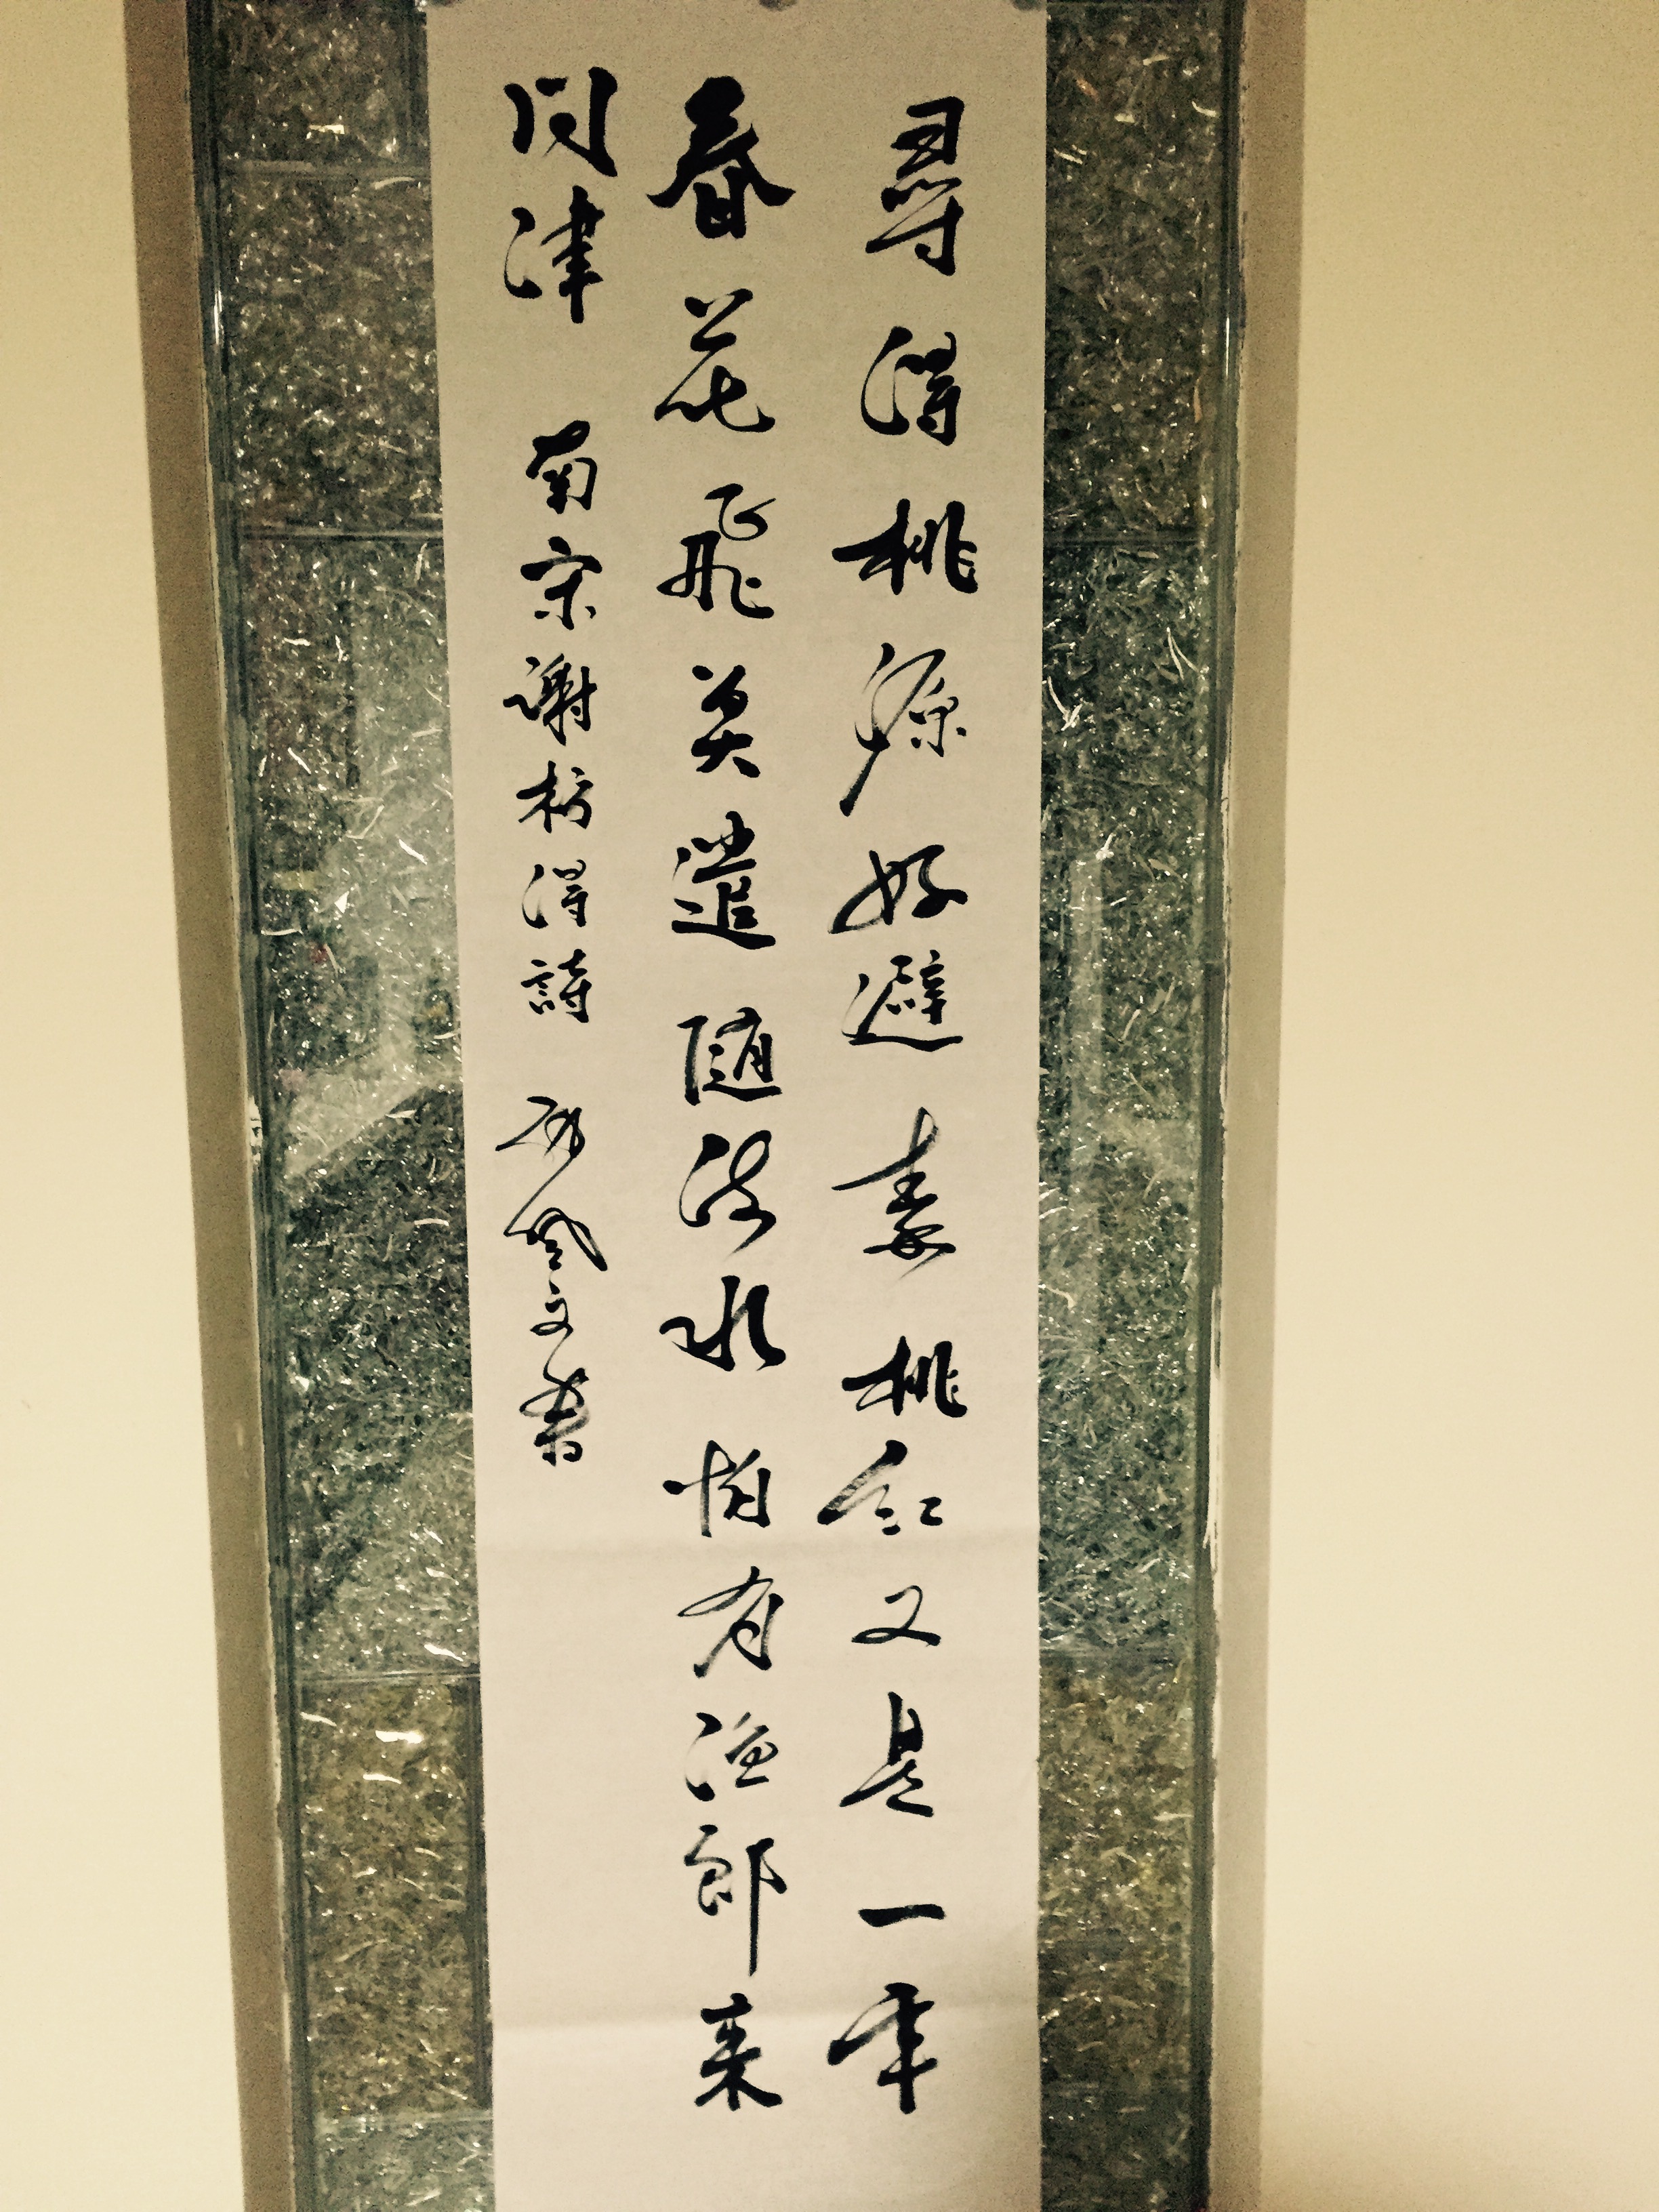 尋得桃源好避秦桃紅又是一年
春花飛莫遣隨流水怕有漁郎来
问津 南宋謝枋得詩 文書